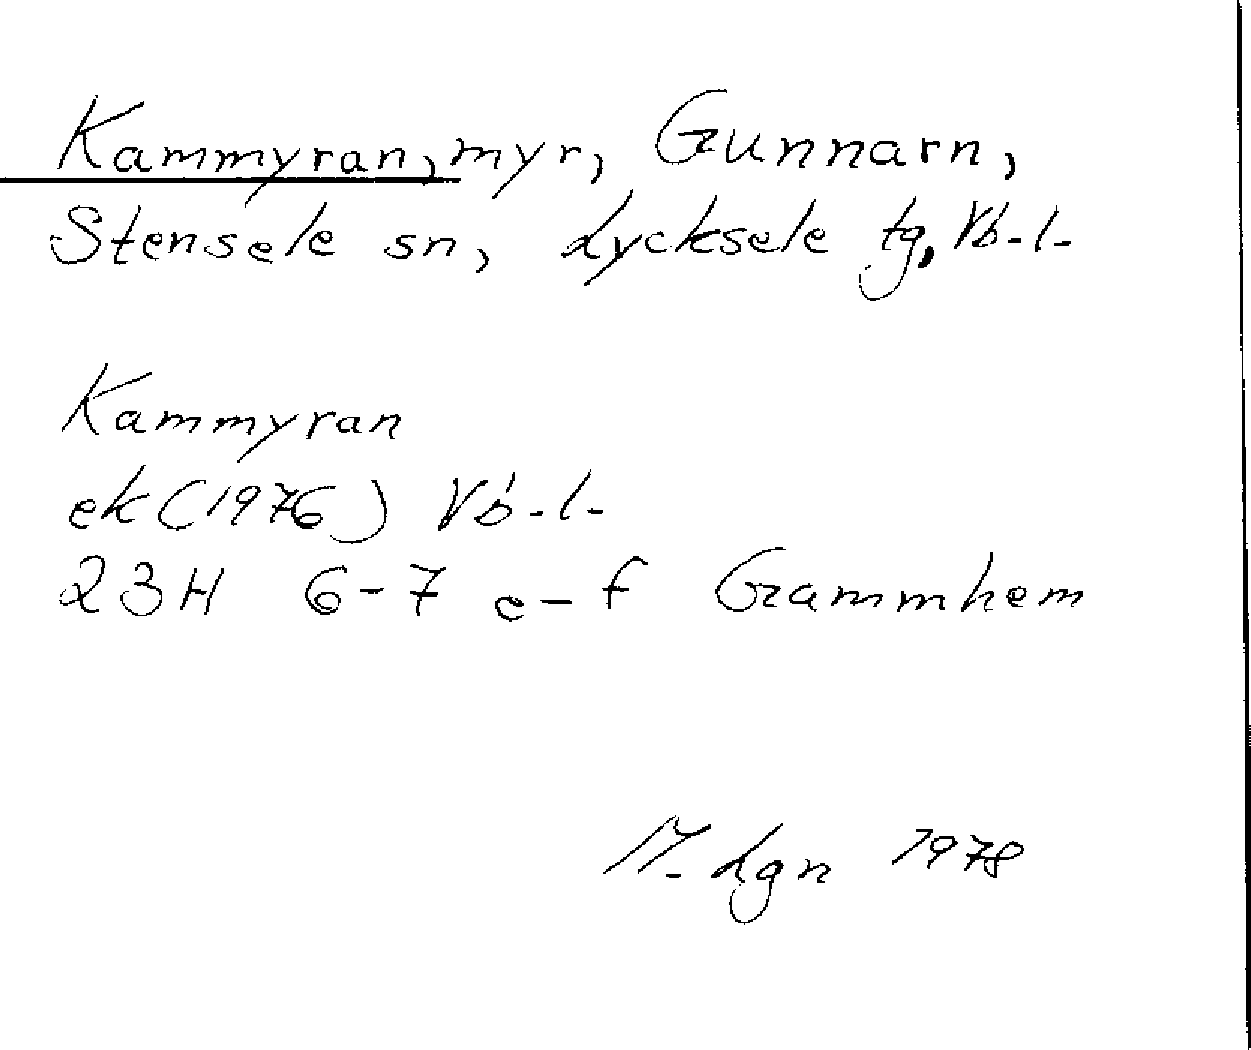 Kammyran, myr, Gunnarn,
Stensele sn, Lycksele tg, Vb-l-
Kammyran
ek (1976) Vb-l-
23H 6-7 e-f Grammhem
M. Lgn 1978